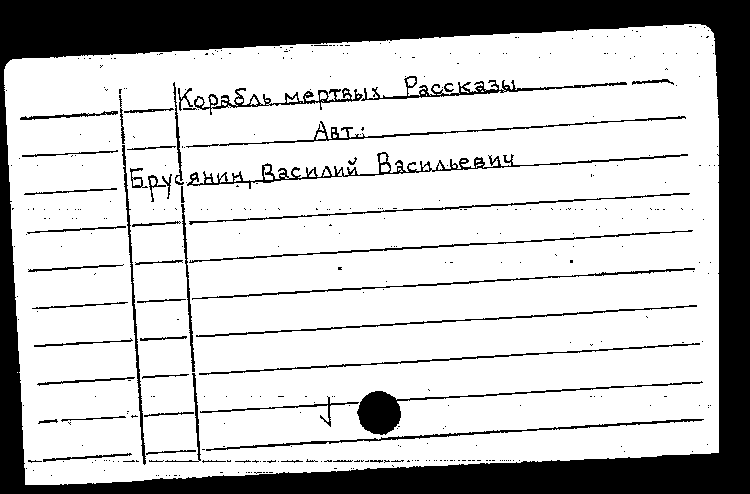 Корабль мертвых. Рассказы
Авт.:
Брусянин, Василий Васильевич